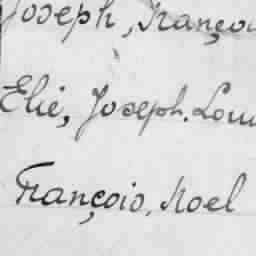 Joseph, Françoi
Elie, Joseph. Loui
François, Noel